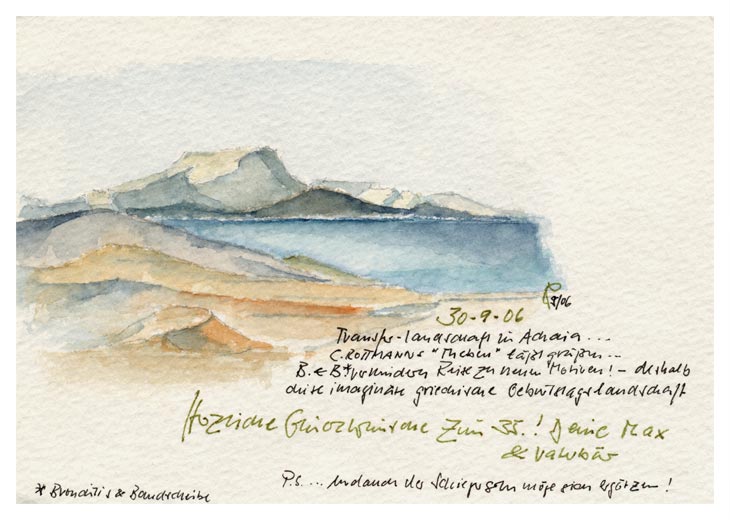 9/06
30-9-06
Transfer-Landschaft in Achaia...
C. ROTTMANNS "Theben" läßt grüßen...
B. & B* vermindern Reise zu neuen Motiven! - deshalb
diese imaginäre griechische Geburtstagslandschaft
Herzliche Glückwünsche zum 35.! Deine Max
&
P.S. ... und auch der Schiegersohn möge sich ergötzen!
* Bronchitis & Bandscheibe